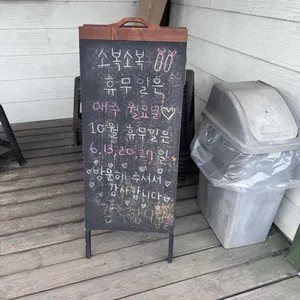 소복소복
휴무일은
매주 월요일♡
10월 휴무일은
6,13,20,27일
방문해 주셔서
감사합니다